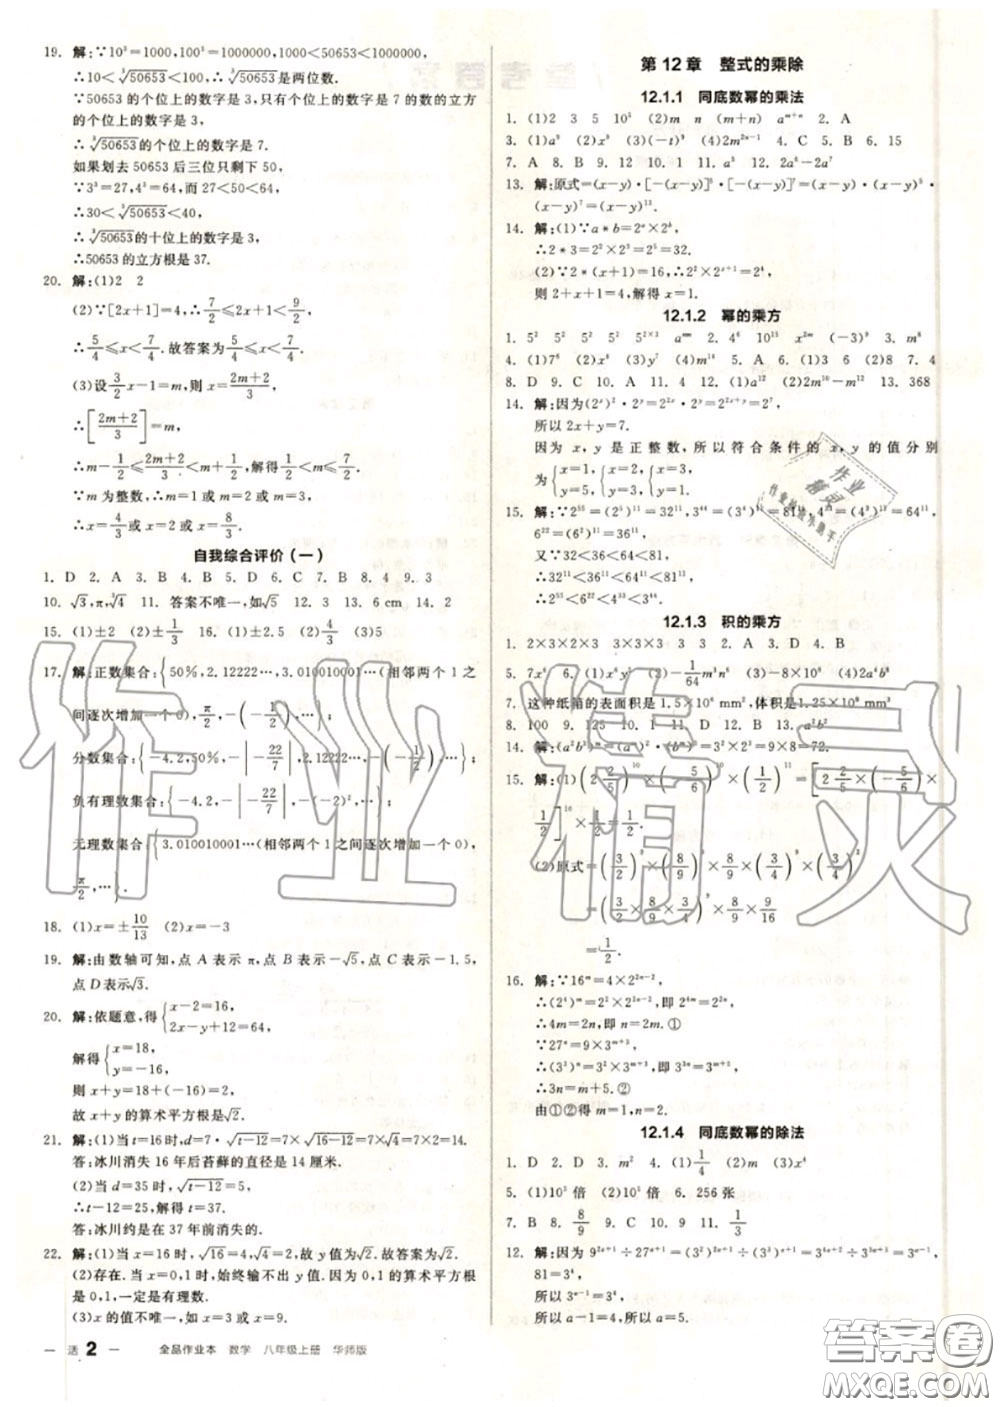 19. 解:∵10³=1000,100³=1000000,1000<50653<1000000,
∴10<∛50653<100,∴∛50653是两位数.
∵50653的个位上的数字是3,只有个位上的数字是7的数的立方
的个位上的数字是3,
∴∛50653的个位上的数字是7.
如果划去50653后三位只剩下50.
∵3³=27,4³=64,而27<50<64,
∴30<∛50653<40,
∴∛50653的十位上的数字是3.
∴50653的立方根是37.
20. 解:(1)2 2
(2)∵[2x+1]=4,∴7/2≤2x+1<9/2,
∴5/4≤x<7/4.故答案为5/4≤x<7/4.
(3)设3/2x-1=m,则x=(2m+2)/3,
∴[(2m+2)/3]=m,
∴m-1/2≤(2m+2)/3<m+1/2,解得1/2<m≤7/2.
∵m为整数,∴m=1或m=2或m=3,
∴x=4/3或x=2或x=8/3.
自我综合评价(一)
1. D 2. A 3. C 4. B 5. C 6. B 7. D 8. 4 9. 3
10. √3,π,∛4 11. 答案不唯一,如√5 12. 3 13. 6 cm 14. 2
15. (1)±2 (2)±1/3 16. (1)±2.5 (2)4/3 (3)5
17. 解:正数集合:{50%,2.12222…,3.010010001…(相邻两个1之
间逐次增加一个0),π/2,-(-1/2),…};
分数集合:{-4.2,50%,-|-22/7|,2.12222…,-(-1/2),…};
负有理数集合:{-4.2,-|-22/7|,-(-2)²,…};
无理数集合:{3.010010001…(相邻两个1之间逐次增加一个0),
π/2,…}.
18. (1)x=±10/13 (2)x=-3
19. 解:由数轴可知,点A表示π,点B表示-√5,点C表示-1.5,
点D表示√3.
20. 解:依题意,得{x-2=16, 2x-y+12=64,
解得{x=18, y=-16,
则x+y=18+(-16)=2,
故x+y的算术平方根是√2.
21. 解:(1)当t=16时,d=7·√(t-12)=7×√(16-12)=7×√4=7×2=14.
答:冰川消失16年后苔藓的直径是14厘米.
(2)当d=35时,√(t-12)=5,
∴t-12=25,解得t=37.
答:冰川约是在37年前消失的.
22. 解:(1)当x=16时,√16=4,√4=2,故y值为√2.故答案为√2.
(2)存在.当x=0,1时,始终输不出y值.因为0,1的算术平方根
是0,1,一定是有理数.
(3)x的值不唯一,如x=3或x=9.
第12章 整式的乘除
12.1.1 同底数幂的乘法
1. (1)2 3 5 10⁵ (2)m n (m+n) aᵐ⁺ⁿ 2. A
3. (1)a⁹ (2)x⁶ (3)(-t)⁹ (4)2m²ⁿ⁻¹ 4. C 5. B 6. 15
7. A 8. B 9. 12 10. 1 11. a⁵ 12. 2a⁶-2a⁷
14. 解:(1)∵a*b=2ᵃ×2ᵇ,
∴2*3=2²×2³=2⁵=32.
(2)∵2*(x+1)=16,∴2²×2ˣ⁺¹=2⁴,
则2+x+1=4,解得x=1.
12.1.2 幂的乘方
1. 5² 5² 5² 5²ˣ³ aᵐⁿ 2. 4⁶ 10¹⁵ x²ᵐ (-3)⁹ 3. m⁸
4. (1)7⁶ (2)x⁸ (3)y⁷ (4)m¹⁶ 5. A 6. (1)3 (2)8 7. 4
8. D 9. C 10. A 11. 4 12. (1)a¹² (2)2m¹⁰-m¹² 13. 368
14. 解:因为(2ˣ)²·2ʸ=2²ˣ·2ʸ=2²ˣ⁺ʸ=2⁷,
所以2x+y=7.
因为x,y是正整数,所以符合条件的x,y的值分别
为{x=1, y=5, {x=2, y=3, {x=3, y=1.
15. 解:∵2⁵⁵=(2⁵)¹¹=32¹¹,3⁴⁴=(3⁴)¹¹=81¹¹,4³³=(4³)¹¹=64¹¹,
6²²=(6²)¹¹=36¹¹,
又∵32<36<64<81,
∴32¹¹<36¹¹<64¹¹<81¹¹,
∴2⁵⁵<6²²<4³³<3⁴⁴.
12.1.3 积的乘方
1. 2×3×2×3 3×3×3 3 3 2. A 3. D 4. B
5. 7x⁶ 6. (1)x⁶y³ (2)-1/64m³n⁶ (3)-8×10⁶ (4)2a⁴b⁸
7. 这种纸箱的表面积是1.5×10⁶ mm²,体积是1.25×10⁸ mm³
8. 100 9. 125 10. 1 11. D 12. B 13. a²b²
14. 解:(a²b³)ⁿ=(aⁿ)²·(bⁿ)³=3²×2³=9×8=72.
15. 解:(1)(2 2/5)¹⁰×(-5/6)¹⁰×(1/2)¹¹=[2 2/5×(-5/6)×
1/2]¹⁰×1/2=1/2.
(2)原式=(3/2)⁹×(8/9)⁹×8/9×(3/4)⁹×(3/4)²
=(3/2×8/9×3/4)⁹×8/9×9/16
=1/2.
16. 解:∵16ᵐ=4×2²ⁿ⁻²,
∴(2⁴)ᵐ=2²×2²ⁿ⁻²,即2⁴ᵐ=2²ⁿ,
∴4m=2n,即n=2m.①
∵27ⁿ=9×3ᵐ⁺³,
∴(3³)ⁿ=3²×3ᵐ⁺³,即3³ⁿ=3ᵐ⁺⁵,
∴3n=m+5.②
由①②得m=1,n=2.
12.1.4 同底数幂的除法
1. D 2. D 3. m² 4. (1)1/4 (2)m (3)x⁴
5. (1)10³倍 (2)10³倍 6. 256张
7. B 8. 8/9 9. C 10. 9 11. 1/3
12. 解:因为9²ᵃ⁺¹÷27ᵃ⁺¹=(3²)²ᵃ⁺¹÷(3³)ᵃ⁺¹=3⁴ᵃ⁺²÷3³ᵃ⁺³=3ᵃ⁻¹,
81=3⁴,
所以3ᵃ⁻¹=3⁴,
所以a-1=4,所以a=5.
— 活 2 — 全品作业本 数学 八年级上册 华师版
作业精灵
答案卷
MXQE.COM